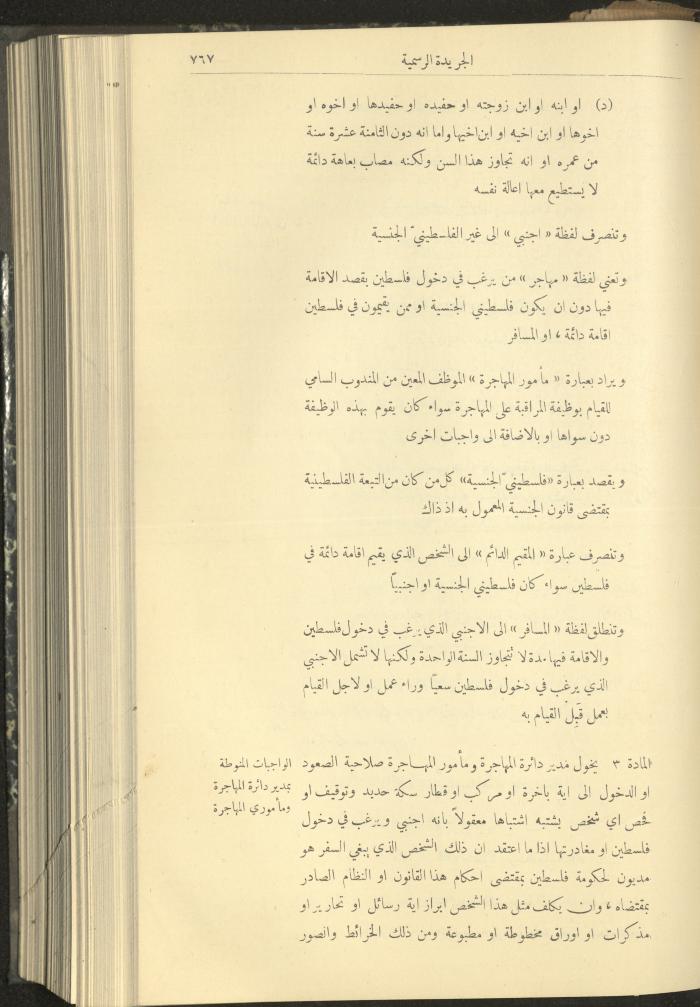 الجريدة الرسمية ٧٦٧
(د) او ابنه او ابن زوجته او حفيده او حفيدها او اخوه او
اخوها او ابن اخيه او ابن اخيها واما انه دون الثامنة عشرة سنة
من عمره او انه تجاوز هذا السن ولكنه مصاب بعاهة دائمة
لا يستطيع معها اعالة نفسه
وتنصرف لفظة « اجنبي » الى غير الفلسطينيّ الجنسية
وتعني لفظة « مهاجر » من يرغب في دخول فلسطين بقصد الاقامة
فيها دون ان يكون فلسطيني الجنسية او ممن يقيمون في فلسطين
اقامة دائمة ، او المسافر
ويراد بعبارة « مأمور المهاجرة » الموظف المعين من المندوب السامي
للقيام بوظيفة المراقبة على المهاجرة سواء كان يقوم بهذه الوظيفة
دون سواها او بالاضافة الى واجبات اخرى
ويقصد بعبارة «فلسطينيّ الجنسية» كل من كان من التبعة الفلسطينية
بمقتضى قانون الجنسية المعمول به اذ ذاك
وتنصرف عبارة « المقيم الدائم » الى الشخص الذي يقيم اقامة دائمة في
فلسطين سواء كان فلسطيني الجنسية او اجنبيًا
وتنطلق لفظة « المسافر » الى الاجنبي الذي يرغب في دخول فلسطين
والاقامة فيها مدة لا تتجاوز السنة الواحدة ولكنها لا تشمل الاجنبي
الذي يرغب في دخول فلسطين سعيًا وراء عمل او لاجل القيام
بعمل قَبِلَ القيام به
المادة ٣ يخول مدير دائرة المهاجرة ومأمور المهاجرة صلاحية الصعود
او الدخول الى اية باخرة او مركب او قطار سكة حديد وتوقيف او
فحص اي شخص يشتبه اشتباها معقولاً بانه اجنبي ويرغب في دخول
فلسطين او مغادرتها اذا ما اعتقد ان ذلك الشخص الذي يبغي السفر هو
مديون لحكومة فلسطين بمقتضى احكام هذا القانون او النظام الصادر
بمقتضاه ، وان يكلف مثل هذا الشخص ابراز اية رسائل او تحارير او
مذكرات او اوراق مخطوطة او مطبوعة ومن ذلك الخرائط والصور
الواجبات المنوطة
بمدير دائرة المهاجرة
ومأموري المهاجرة